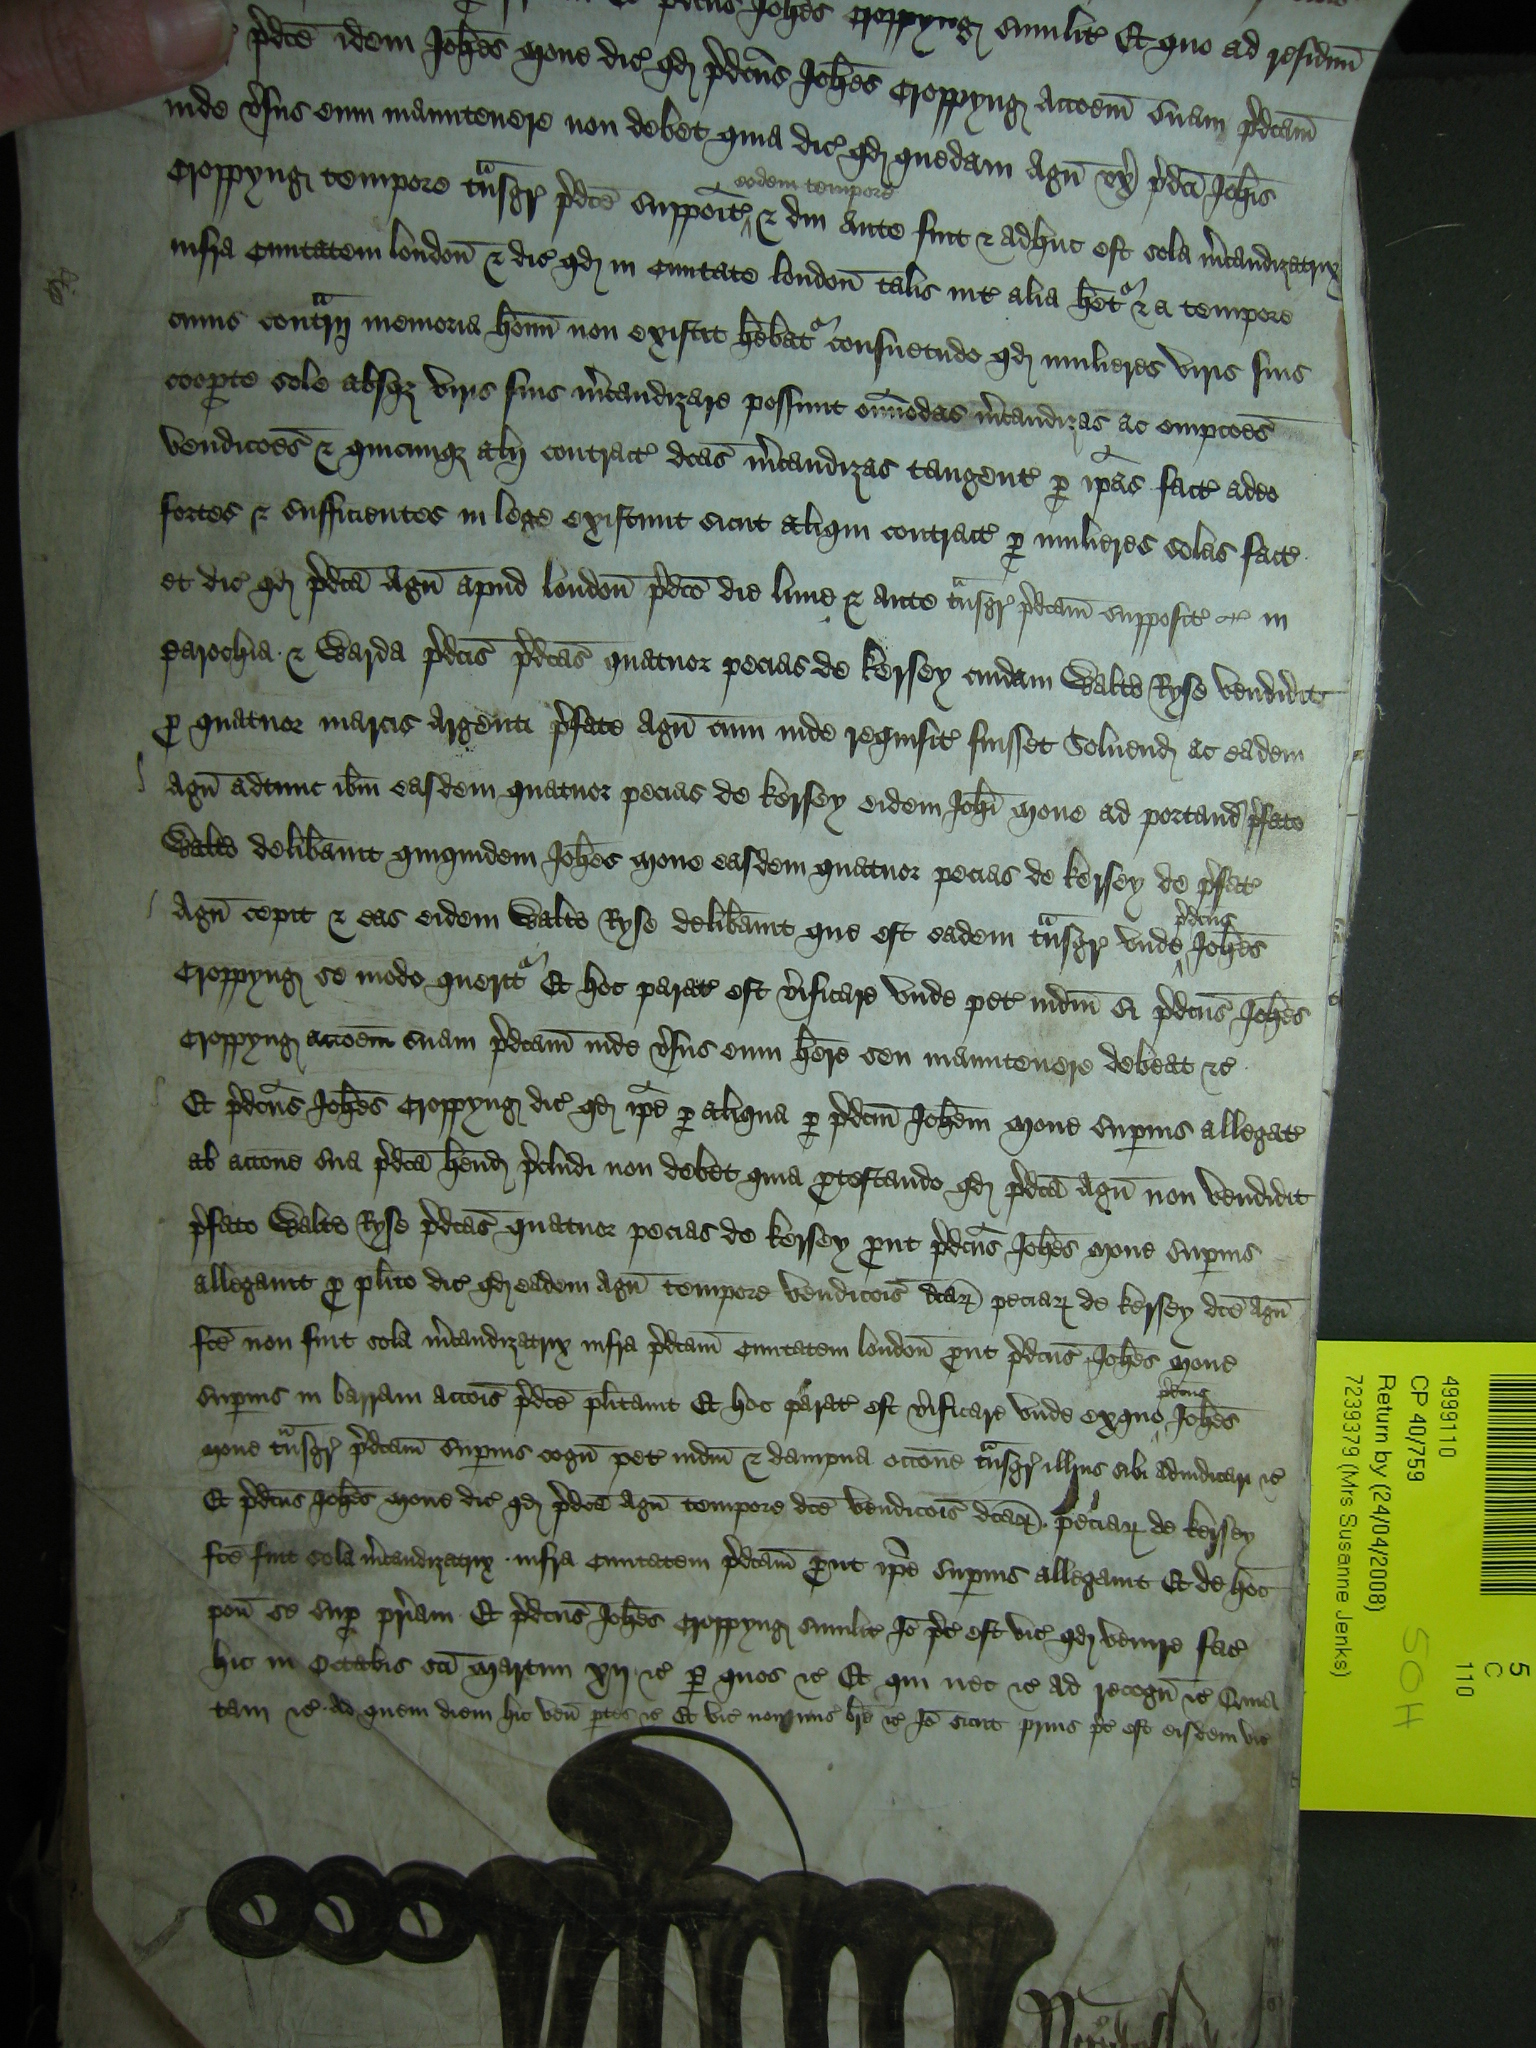 p̄dcūs Joħes Croppyng similit̄ Et quo ad residuū
p̄dcē idem Joħes Mone dic̄ qđ p̄dcūs Joħes Croppyng accoem̄ suam p̄dcam̄
inde v̄sus eum manutenere non debet quia dic̄ qđ quedam Agn̄ vx̄ p̄dcī Joħis
Croppyng tempore t̄nsgr̄ p̄dcē supposit̄ eodem tempore & diu ante fuit & adhuc est sola m̄candizatrix
infra Ciuitatem london̄ & dic̄ qđ in Ciuitate london̄ talis int̄ alia het̄ & a tempore
cuius contrar̄ memoria hoīm̄ non existit hēbat̄ consuetudo qđ mulieres viris suis
coop̄te sole absqȝ viris suis m̄candizare possunt om̄iodas m̄candizas ac empcoēs
vendicoēs & quicunqȝ alij contract̄ dcās m̄candizas tangent̄ p̄ ip̄as fact̄ adeo
fortes & sufficientes in lege existunt sicut aliqui contract̄ p̄ mulieres solas fact̄
et dic̄ qđ p̄dcā Agn̄ apud london̄ p̄dcē die lune & ante t̄nsgr̄ p̄dcam̄ supposit̄ &c̄ in
parochia & Warda p̄dcīs p̄dcās quatuor pecias de kersey cuidam Walto Ryse vendidit
p̄ quatuor marcis argenti p̄fate Agn̄ cum inde requisit̄ fuisset soluend̄ ac eadem
Agn̄ adtunc ib̄m easdem quatuor pecias de kersey eidem Joħi Mone ad portand̄ p̄fato
Walto delib̄auit quiquidem Joħes Mone easdem quatuor pecias de kersey de p̄fat̄
Agn̄ cepit & eas eidem Walto Ryse delib̄auit que est eadem t̄nsgr̄ vnde p̄dcūs Joħes
Croppyng se modo querit̄ Et hoc parat̄ est v̄ificare vnde pet̄ iudm̄ si p̄dcūs Joħes
Croppyng accoem̄ suam p̄dcam̄ inde v̄sus eum hēre seu manutenere debeat &c̄
Et p̄dcūs Joħes Croppyng dic̄ qđ ip̄e p̄ aliqua p̄ p̄dcm̄ Joħem Mone sup̄ius allegat̄
ab accone sua p̄dcā hend̄ p̄cludi non debet quia p̄testando qđ p̄dcā Agn̄ non vendidit
p̄fato Walto Ryse p̄dcās quatuor pecias de kersey p̄ut p̄dcūs Joħes Mone sup̄ius
allegauit p̄ pl̄ito dic̄ qđ eadem Agn̄ tempore vendicois̄ dcar̄ peciar̄ de kersey dcē Agn̄
fcē non fuit sola m̄candizatrix infra p̄dcam̄ Ciuitatem london̄ p̄ut p̄dcūs Joħes Mone
sup̄ius in barram accois̄ p̄dcē pl̄itauit Et hoc parat̄ est v̄ificare vnde exquo p̄dcūs Joħes
Mone t̄nsgr̄ p̄dcam̄ sup̄ius cogn̄ pet̄ iudm̄ & dampna occone t̄nsgr̄ illius sibi adiudicari &c̄
Et p̄dcūs Joħes Mone dic̄ qđ p̄dcā Agn̄ tempore dcē vendicois̄ dcar̄ peciar̄ de kersey
fcē fuit sola m̄candizatrix infra Ciuitatem p̄dcam̄ p̄ut ip̄e sup̄ius allegauit Et de hoc
pon̄ se sup̄ pr̄iam Et p̄dcūs Joħes Croppyng similit̄ Jō p̄c̄ est vic̄ qđ venire fac̄
hic in Octabis sc̄i Martini xij &c̄ p̄ quos &c̄ Et qui nec &c̄ ad recogn̄ &c̄ Quia
tam &c̄ Ad quem diem hic ven̄ p̄tes &c̄ Et vic̄ non mis̄ br̄e &c̄ Jō sicut prius p̄c̄ est eisdem vic̄
4999110
CP 40/759
Return by (24/04/2008)
7239379 (Mrs Susanne Jenks)
5
C
110
SOH